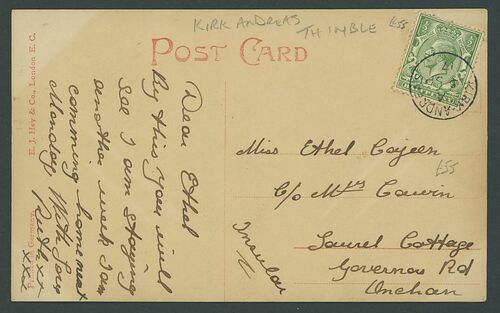 KIRK ANDREAS
THIMBLE
£55
POST CARD
E. J. Hey & Co., London E. C.
Dear Ethel
By this you will
See I am staying
another week I am
comming home next
Monday, With Love
Ruth xx
xxx
Insular
Miss Ethel
£55
C/o Mrs
Laurel Cottage
Governors Rd
Onchan